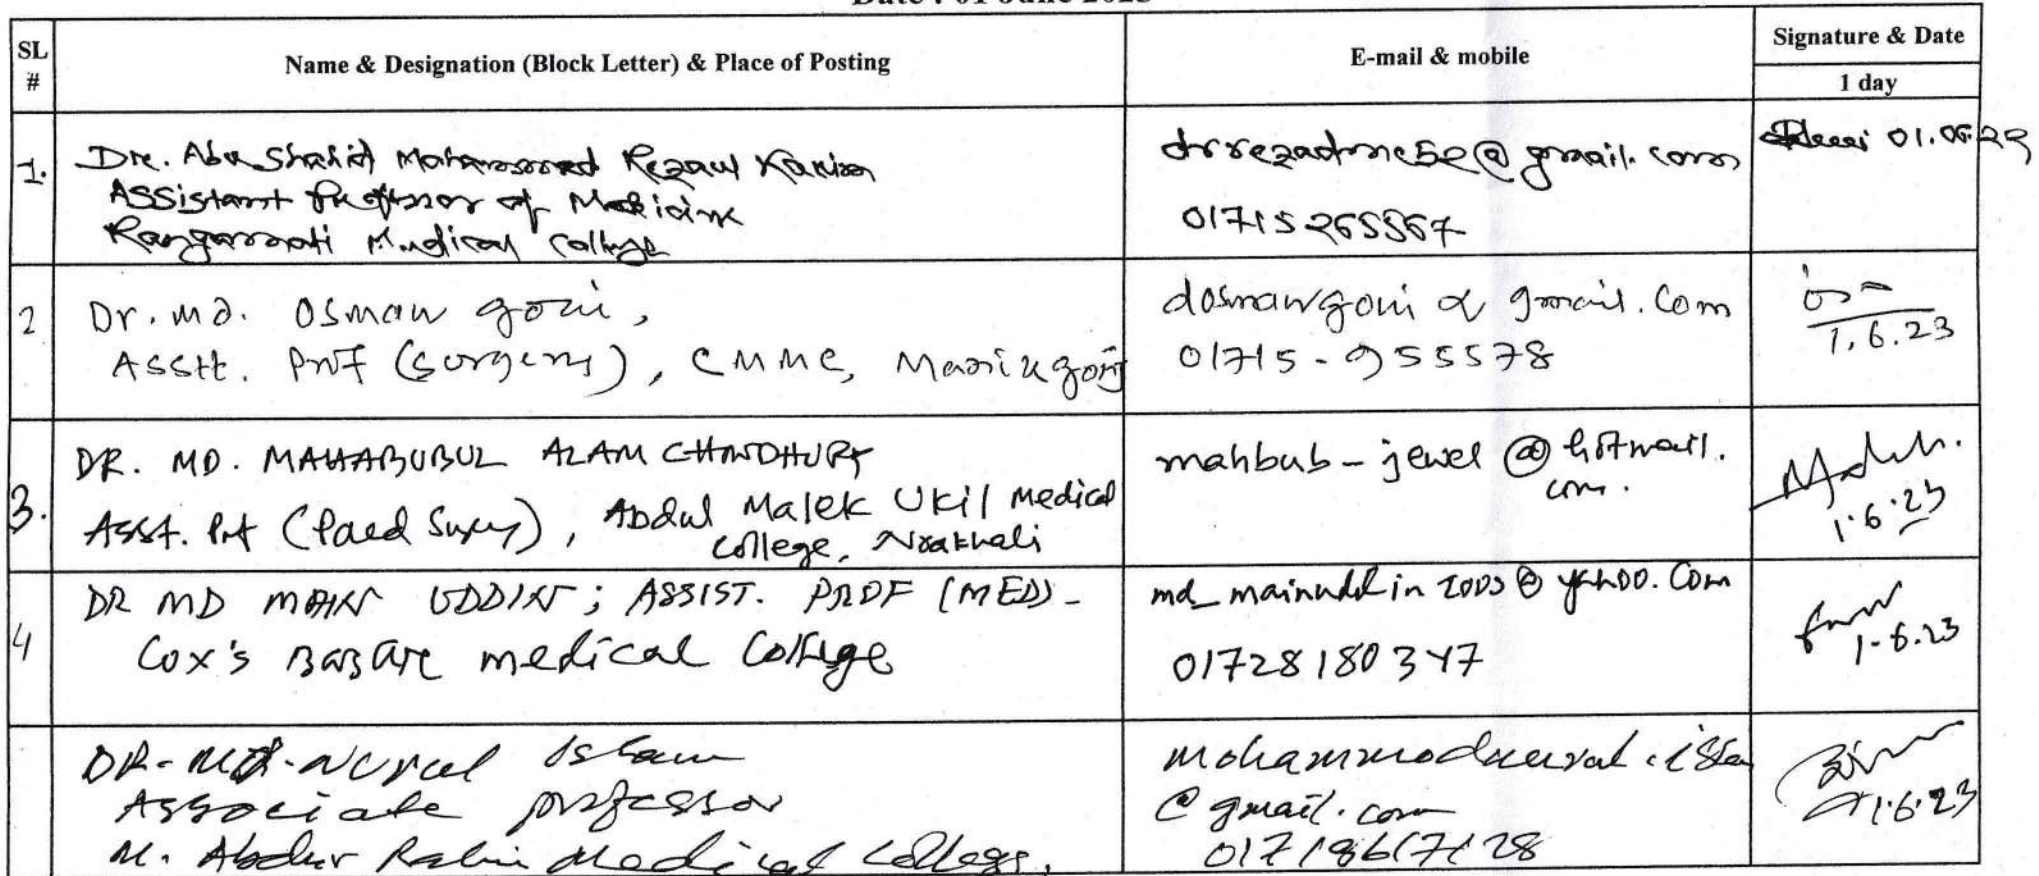 Date : 01 June 2023
SL #
Name & Designation (Block Letter) & Place of Posting
E-mail & mobile
Signature & Date
1 day
1.
Dr. Abu Shahid Mohammed Rezaul Karim
Assistant Professor of Medicine
Rangamati Medical College
drrezadmc52@gmail.com
01715265567
01.06.23
2
Dr. Md. Osman goni,
Asstt. Prof (surgery), CMMC, Manikgonj
dosmangoni @ gmail.com
01715-955578
1.6.23
3.
DR. MD. MAHABUBUL ALAM CHOWDHURY
Asst. Prof (Paed Surgery), Abdul Malek Ukil Medical
College, Noakhali
mahbub-jewel @ hotmail.
com.
1.6.23
4
DR MD MAIN UDDIN; ASSIST. PROF (MED)-
Cox's Bazar medical College
md_mainuddin 2003@yahoo.com
01728180347
1-6.23
DR. MD. Nurul Islam
Associate professor
M. Abdur Rahim Medical College.
@ gmail.com
1.6.23